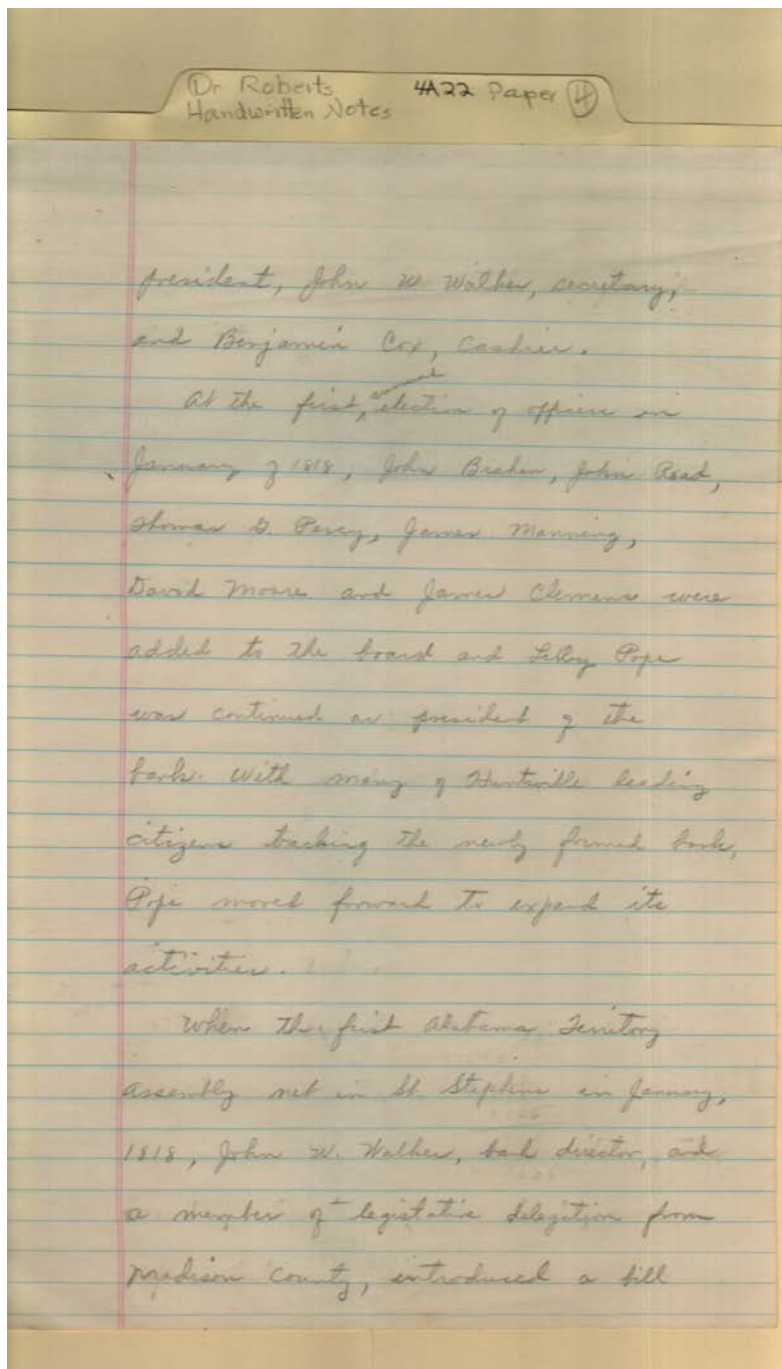 Dr Roberts 4A22 Paper 4
Handwritten Notes
president, John W. Walker, secretary,
and Benjamin Cox, Cashier.
annual
At the first, election of officers in
January of 1818, John Brahan, John Read,
Thomas G. Percy, James Manning,
David Moore and James Clemens were
added to the board and LeRoy Pope
was continued as president of the
bank. With many of Huntsville leading
citizens backing the newly formed bank,
Pope moved forward to expand its
activities.
When the first Alabama Territory
Assembly met in St Stephens in January,
1818, John W. Walker, bank director, and
a member of legislative delegation from
Madison County, introduced a bill